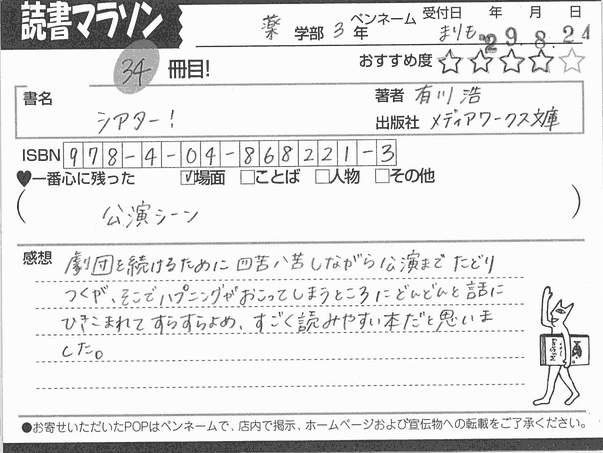 読書マラソン
薬 学部 3 年 ペンネーム まりも 受付日 年 月 日
29.8.24
34 冊目!
おすすめ度 ☆☆☆☆☆
書名 シアター!
著者 有川 浩
出版社 メディアワークス文庫
ISBN 978-4-04-868221-3
♥一番心に残った ☑場面 □ことば □人物 □その他
( 公演シーン )
感想 劇団を続けるために四苦八苦しながら公演までたどり
つくが、そこでハプニングがおこってしまうところにどんどんと話に
ひきこまれてすらすらよめ、すごく読みやすい本だと思いま
した。
●お寄せいただいたPOPはペンネームで、店内で掲示、ホームページおよび宣伝物への転載をご了承ください。